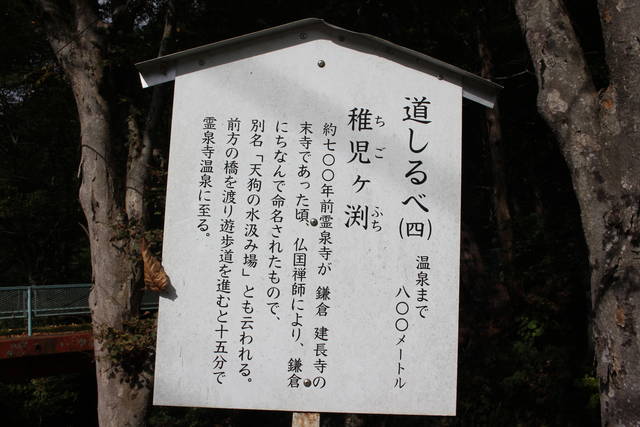 道しるべ(四)
温泉まで
八〇〇メートル
稚児ヶ渕
ちご
ふち
約七〇〇年前霊泉寺が 鎌倉 建長寺の
末寺であった頃、仏国禅師により、鎌倉
にちなんで命名されたもので、
別名「天狗の水汲み場」とも云われる。
前方の橋を渡り遊歩道を進むと十五分で
霊泉寺温泉に至る。